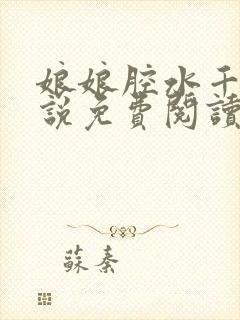 娘娘腔水千
說免費閱讀
蘇秦